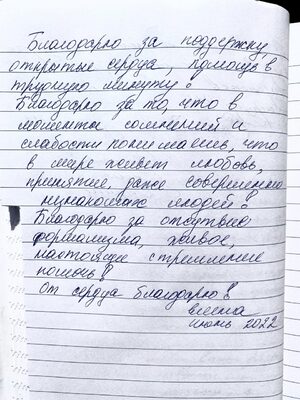 Благодарю за поддержку,
открытые сердца, помощь в
трудную минуту!
Благодарю за то, что в
моменты сомнений и
слабости понимаешь, что
в мире живет любовь,
принятие, даже совершенно
незнакомых людей!
Благодарю за отсутствие
формализма, живое,
настоящее стремление
помочь!
От сердца благодарю!
Елена
июнь 2022